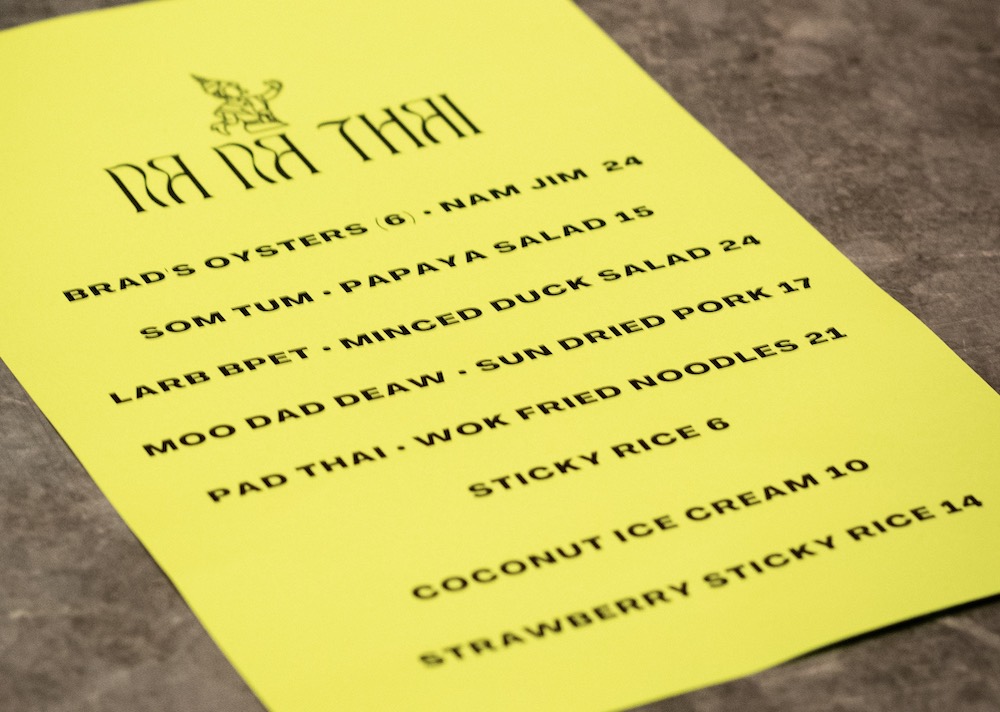 NA NA THAI
BRAD'S OYSTERS (6) • NAM JIM 24
SOM TUM • PAPAYA SALAD 15
LARB BPET • MINCED DUCK SALAD 24
MOO DAD DEAW • SUN DRIED PORK 17
PAD THAI • WOK FRIED NOODLES 21
STICKY RICE 6
COCONUT ICE CREAM 10
STRAWBERRY STICKY RICE 14